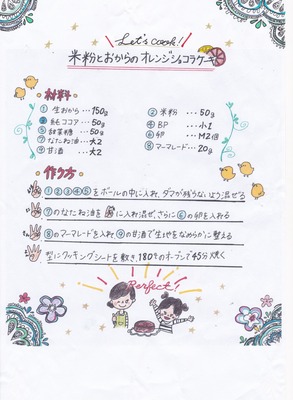 Let's cook!
米粉とおからのオレンジショコラケーキ
材料
① 生おから … 150g
② 米粉 … 50g
③ 純ココア … 50g
④ BP … 小1
⑤ 甜菜糖 … 50g
⑥ 卵 … M2個
⑦ なたね油 … 大2
⑧ マーマレード … 20g
⑨ 甘酒 … 大2
作り方
①②③④⑤をボールの中に入れ、ダマが残らないよう混ぜる
⑦のなたね油を に入れ混ぜ、さらに⑥の卵を入れる
⑧のマーマレードを入れ、⑨の甘酒で生地をなめらかに整える
型にクッキングシートを敷き、180℃のオーブンで45分焼く
Perfect!